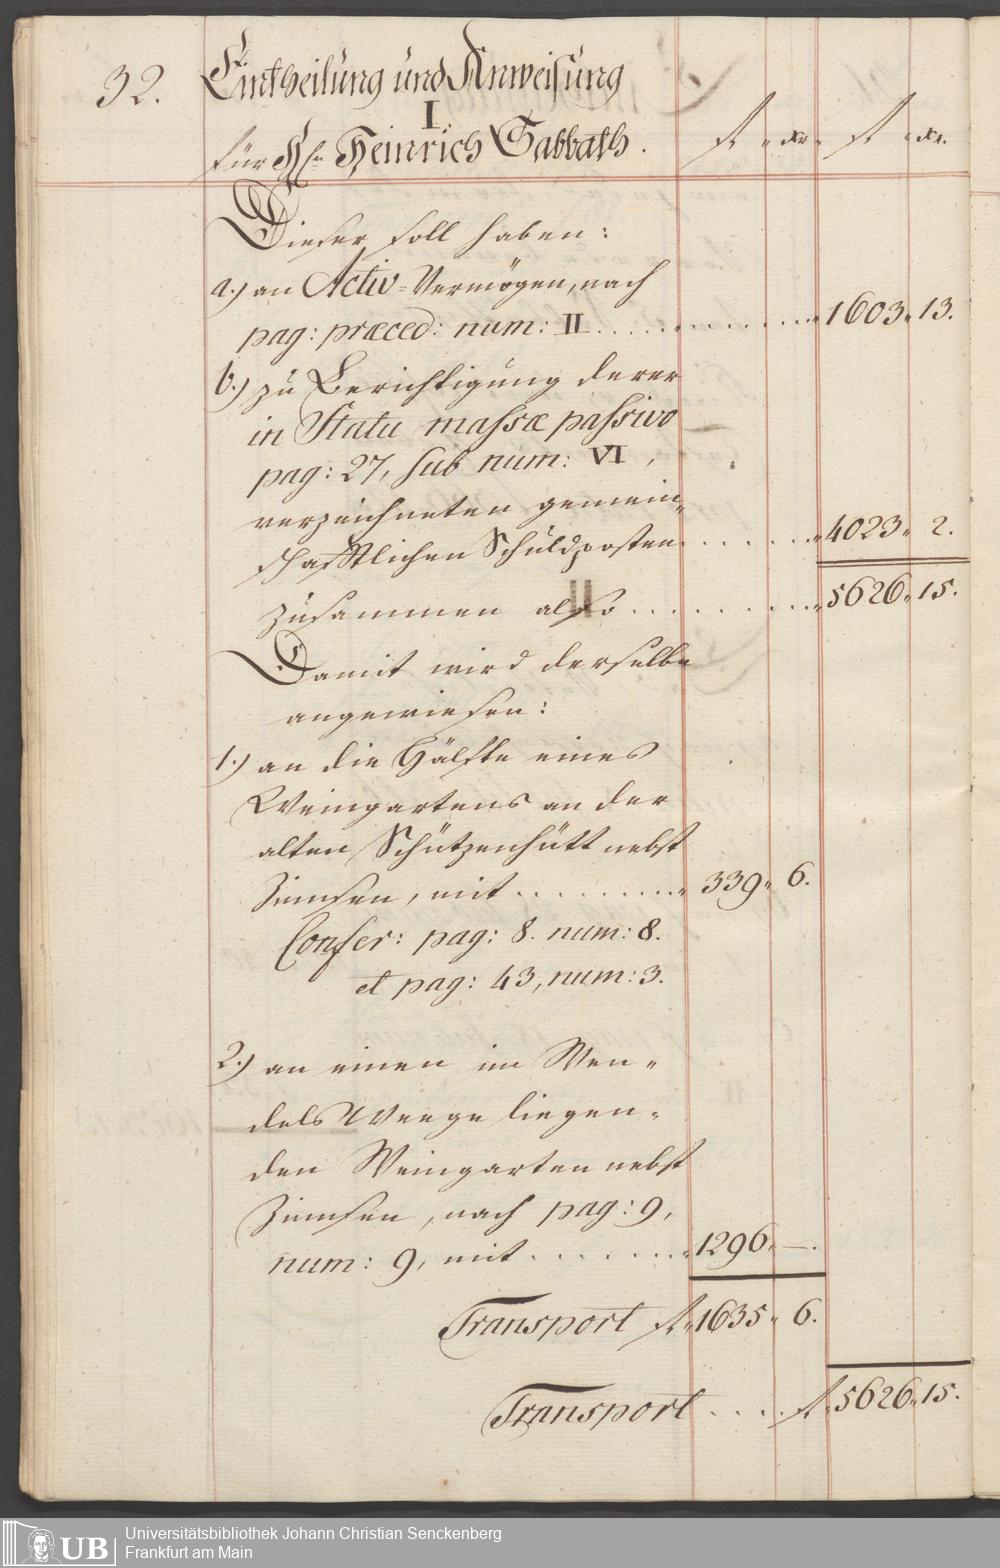 32.
Eintheilung und Anweisung
I.
für Hrn Heinrich Sabbath.
fl „ xr. fl „ xr.
Dieser soll haben:
a.) an Activ-Vermögen, nach
pag: præced: num: II. . . . . . . . . . . „ 1603 „ 13.
b.) zu Berichtigung derer
in Statu massæ passivo
pag: 27, sub num: VI,
verzeichneten gemein„
schafftlichen Schuldposten . . . . . . „ 4023 „ 2.
Zusammen also . . . . . . . . . „ 5626 „ 15.
Damit wird derselbe
angewiesen:
1.) an die Hälfte eines
Weingartens an der
alten Schützenhütt nebst
Zinnsen, mit . . . . . . . . . „ 339 „ 6.
Confer: pag: 8. num: 8.
et pag: 43, num: 3.
2.) an einen im Wen„
dels Weege liegen„
den Weingarten nebst
Zinnsen, nach pag: 9,
num: 9, mit . . . . . . . „ 1296 „ —.
Transport fl „ 1635 „ 6.
Transport . . . . fl „ 5626 „ 15.
UB
Universitätsbibliothek Johann Christian Senckenberg
Frankfurt am Main